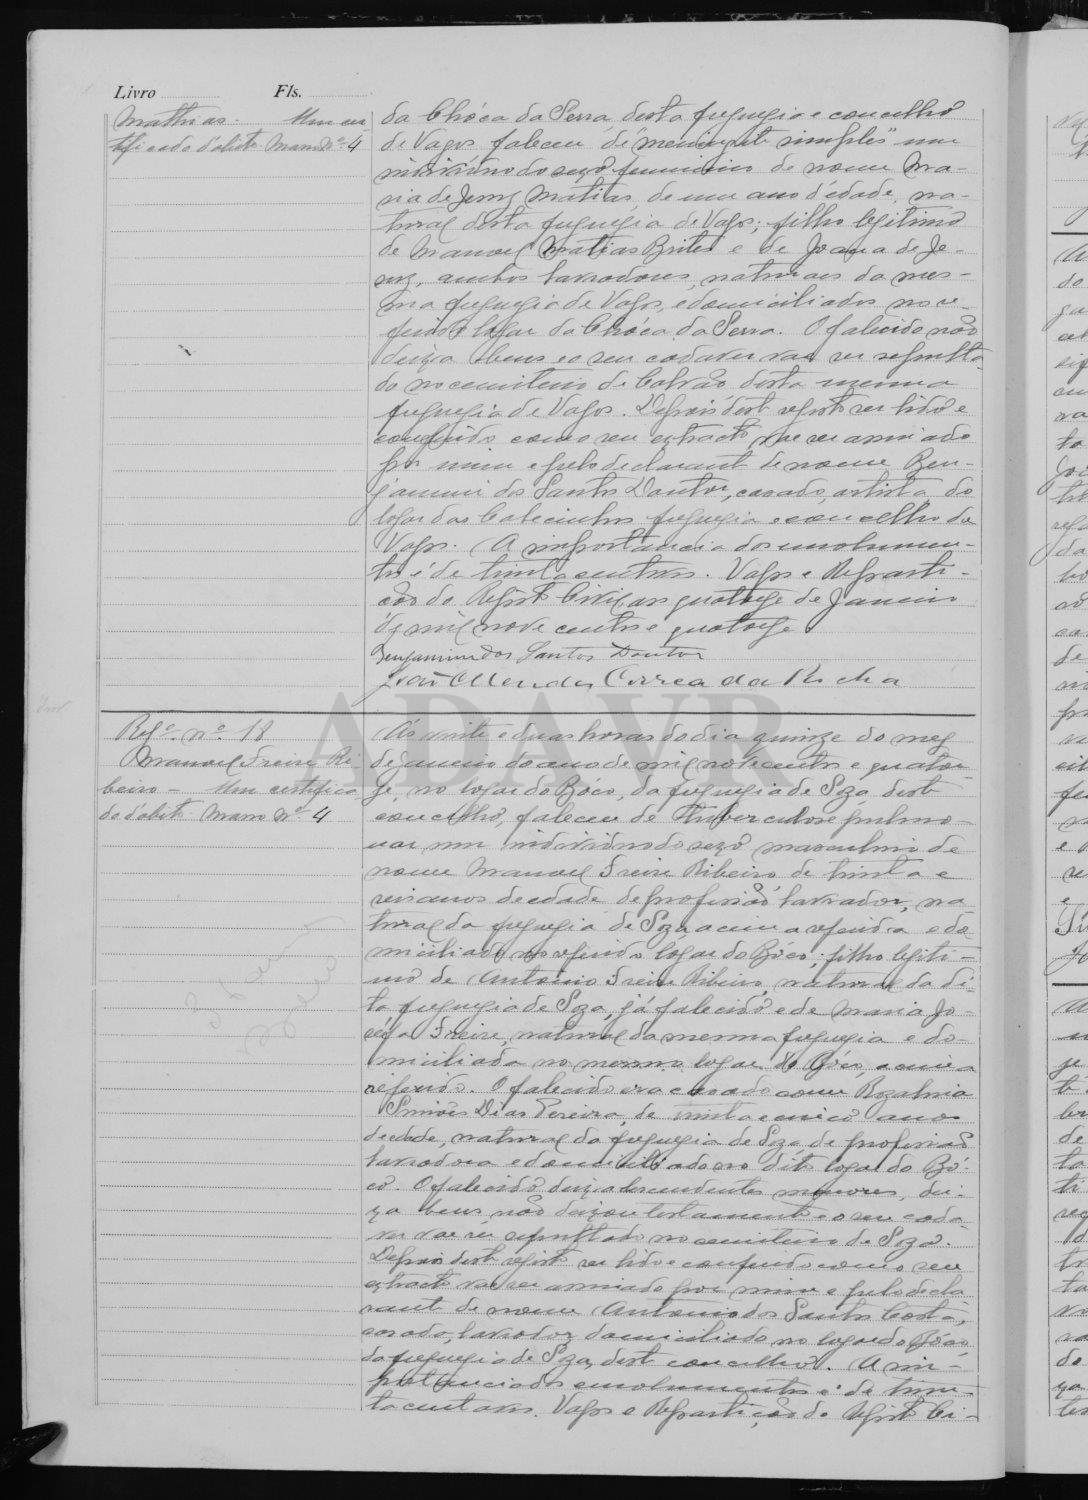 Livro Fls.
Mathias. Um cer-
tificado d'obito Maço Nº 4
da Chóca da Serra, desta freguezia e concelho
de Vagos faleceu de "meningite simples" um
individuo do sexo feminino de nome Ma-
ria de Jesus Matias, de um ano d'edade, na-
tural desta freguezia de Vagos; filho legitimo
de Manoel Matias Brites e de Joana de Je-
sus, ambos lavradores, naturaes da mes-
ma freguezia de Vagos, e domiciliados no re-
ferido logar da Chóca da Serra. O falecido não
deixa bens e o seu cadaver vae ser sepulta-
do no cemiterio de Calvão desta mesma
freguezia de Vagos. Depois deste registo ser lido e
conferido com o seu extracto, vae ser assinado
por mim e pelo declarante de nome Ben-
jamim dos Santos Doutor, casado, artista, do
logar das Calecinhas freguezia e concelho de
Vagos. A importancia dos emolumen-
tos é de trinta centavos. Vagos e Reparti-
ção do Registo Civil, aos quatorze de Janeiro
de mil nove centos e quatorze.
Benjamim dos Santos Doutor
João Mendes Correa da Rocha
Regº. nº. 18
Manoel Freire Ri-
beiro - Um certifica
do d'obito Maço Nº 4
Ás vinte e duas horas do dia quinze do mez
de Janeiro do ano de mil novecentos e quator-
ze, no logar do Bóco, da freguezia de Soza, deste
concelho, faleceu de tuberculose pulmo-
nar um individuo do sexo masculino de
nome Manoel Freire Ribeiro de trinta e
seis anos de edade de profissão lavrador, na-
tural da freguezia de Soza acima referida e do-
miciliado no referido logar do Bóco; filho legiti-
mo de Antonio Freire Ribeiro, natural da di-
ta freguezia de Soza, já falecido e de Maria Jo-
sefa Freire, natural da mesma freguezia e do-
miciliada no mesmo logar do Bóco, acima
referido. O falecido era casado com Rozalina
Simões Dias Pereira, de trinta e cinco anos
de edade, natural da freguezia de Soza de profissão
lavradora e domiciliado no dito logar do Bó-
co. O falecido deixa descendentes menores, dei-
xa bens não deixou testamento e o seu cada-
ver vae ser sepultado no cemiterio de Soza.
Depois deste registo ser lido e conferido com o seu
extracto vae ser assinado por mim e pelo decla
rante de nome Antonio dos Santos Costa,
casado, lavrador, domiciliado no logar do Bóco
da freguezia de Soza, deste concelho. A im-
portancia dos emolumentos é de trin-
ta centavos. Vagos e Repartição do Registo Ci-
ADAVR